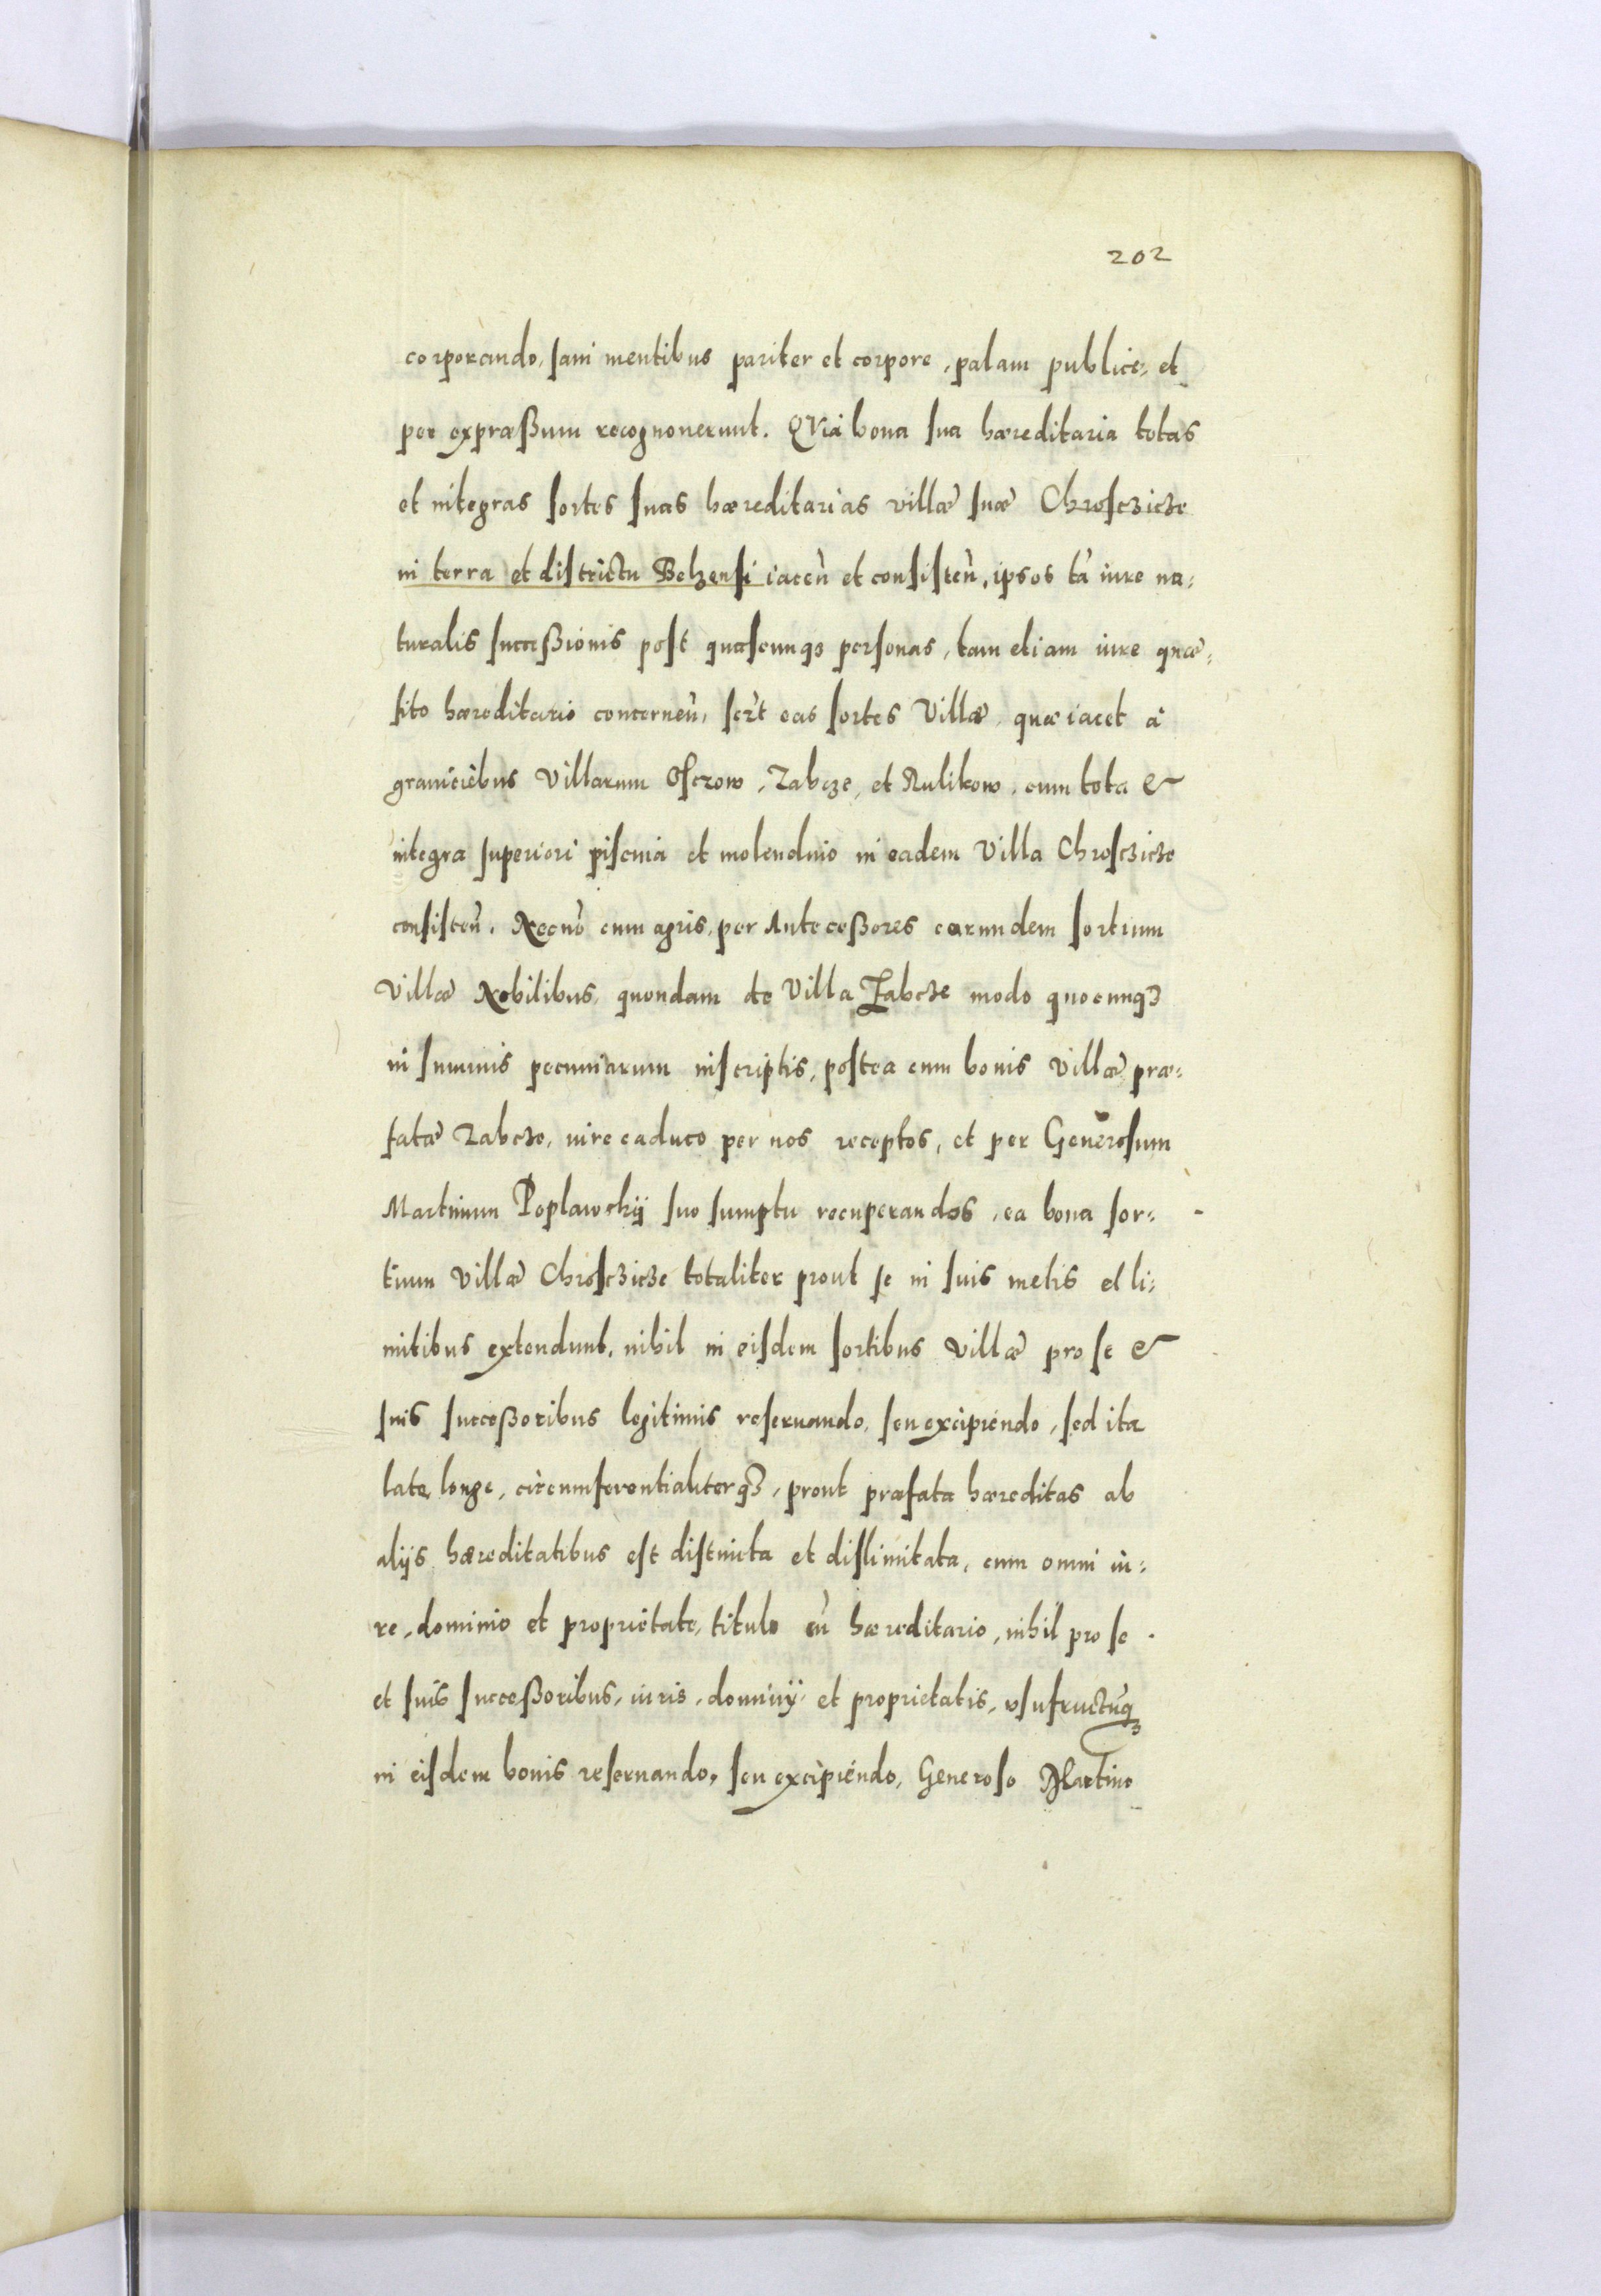 202
corporando, sani mentibus pariter et corpore, palam publice, et
per expræßum recognouerunt. QVia bona sua hæreditaria totas
et integras sortes suas hæreditarias villæ suæ Chrosczicze
in terra et districtu Belzensi iaceñ et consisteñ, ipsos tã iure na-
turalis succeßionis post quascunqз personas, tam etiam iure quæ-
sito hæreditario concerneñ, scr̃t eas sortes Villæ, quæ iacet à
graniciebus Villarum Oserow, Zabcze, et Rulikow, cum tota &
integra superiori piscina et molendino in eadem Villa Chrosczicze
consisteñ. Necnõ cum agris, per Anteceßores earundem sortium
Villæ Nobilibus, quondam de Villa Zabcze modo quocunqз
in summis pecuniarum inscriptis, postea cum bonis Villæ præ-
fatæ Zabcze, iure caduco per nos receptos, et per Generosum
Martinum Poplawskij suo sumptu recuperandos, ea bona sor-
tium Villæ Chrosczicze totaliter prout se in suis metis et li-
mitibus extendunt, nihil in eisdem sortibus Villæ pro se &
suis succeßoribus legitimis reseruando, seu excipiendo, sed ita
late, longe, circumferentialiterqз, prout præfata hæreditas ab
alijs hæreditatibus est distincta et dislimitata, cum omni iu-
re, dominio et proprietate, titulo cũ hæreditario, nihil pro se
et suis succeßoribus, iuris, dominij et proprietatis, vsufructũqз
in eisdem bonis reseruando, seu excipiendo, Generoso Martino